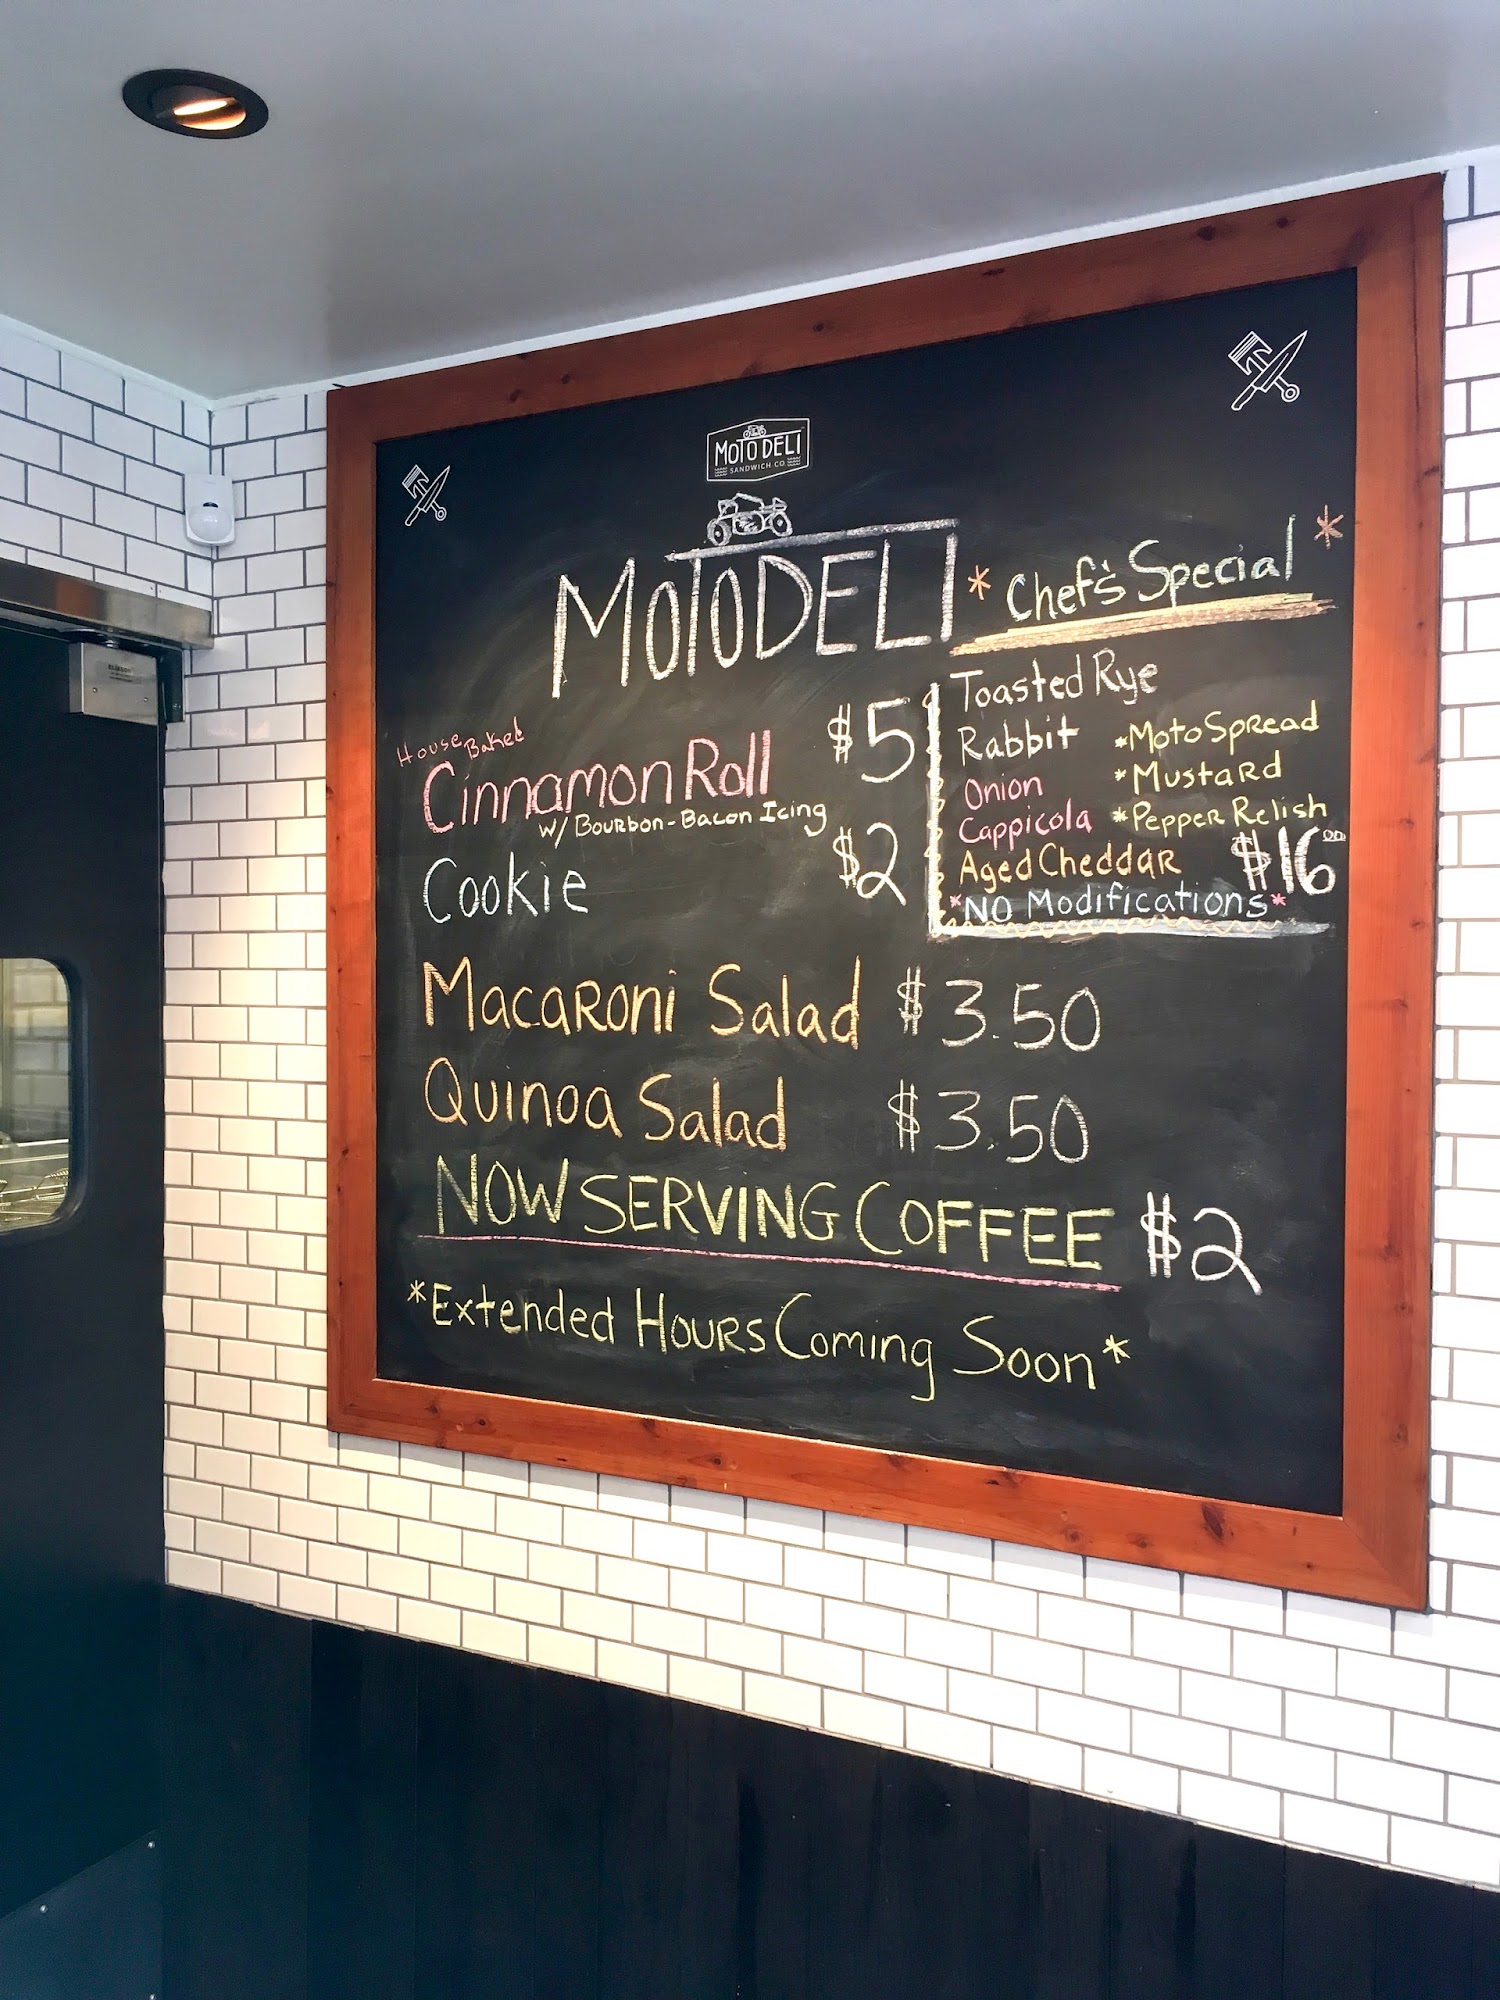 MOTO DELI
SANDWICH CO.
MOTODELI
*Chef's Special*
House Baked
Cinnamon Roll $5
w/ Bourbon-Bacon Icing
Cookie $2
Toasted Rye
Rabbit *Moto Spread
Onion *Mustard
Cappicola *Pepper Relish
Aged Cheddar $16.00
*NO Modifications*
Macaroni Salad $3.50
Quinoa Salad $3.50
NOW SERVING COFFEE $2
*Extended Hours Coming Soon*